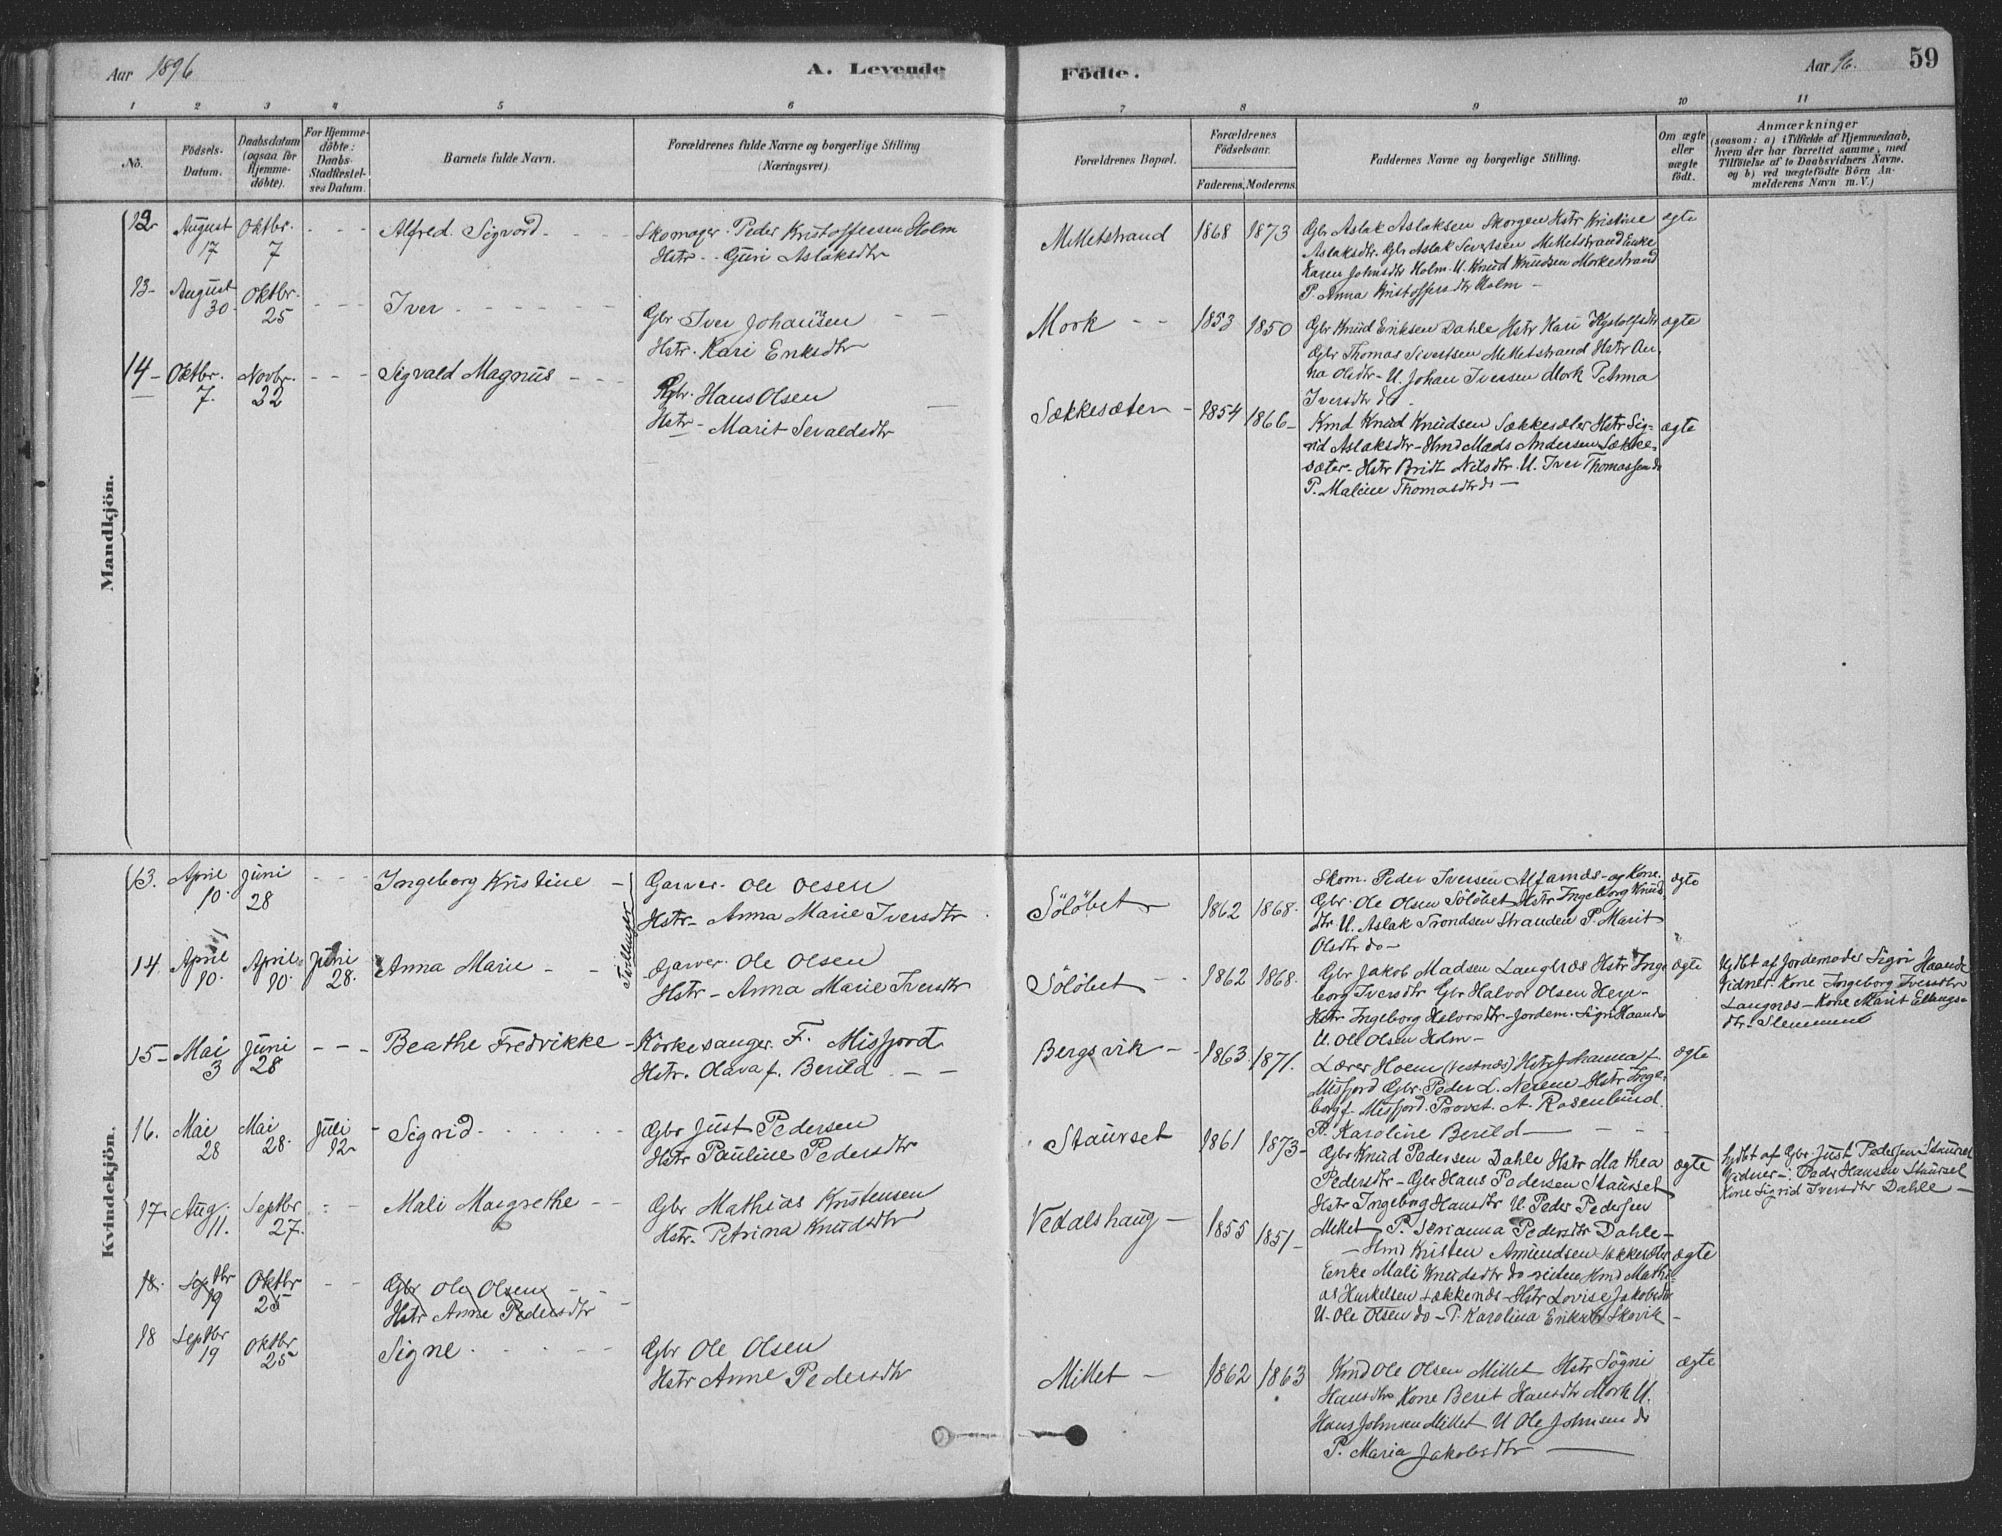 Aar 1896
A. Levende
Födte.
Aar 96.
59
1 2 3 4 5 6 7 8 9 10 11
No.
Födsels-
Datum.
Daabsdatum
(ogsaa for
Hjemme-
döbte).
For Hjemme-
döbte:
Daabs-
Stadfæstel-
ses Datum.
Barnets fulde Navn.
Forældrenes fulde Navne og borgerlige Stilling
(Næringsvei)
Forældrenes Bopæl.
Forældrenes
Födselsaar.
Faderens. Moderens.
Faddernes Navne og borgerlige Stilling.
Om ægte
eller
uægte
födt.
Anmærkninger
(saasom: a) i Tilfælde af Hjemmedaab,
hvem der har forrettet samme, med
Tilföielse af to Daabsvidners Navne.
og b) ved uægtefödte Börn An-
melderens Navn m. V.)
Mandkjön.
12 August
17
Oktbr.
7
- - -
Alfred Sigvard
Skomager Peder Kristoffersen Holm
Hstr. Guri Aslaksdtr
Melletstrand
1868 1873
Gbr Aslak Aslaksen Skorgen Hstr Kristine
Aslaksdtr. Gbr Aslak Sivertsen Melletstrand Enke
Karen Johnsdtr Holm. U. Knud Knudsen Morkestrand
P. Anna Kristoffersdtr Holm -
ægte
13 - August
30
Oktbr.
25
- - -
Iver
Gbr Iver Johansen
Hstr. Kari Eriksdtr
Mork
1853 1850
Gbr Knud Eriksen Dahle Hstr Kari
Gbr Thomas Sivertsen Melletstrand Hstr An-
na Olsdtr - U. Johan Iversen Mork P Anna
Iversdtr do -
ægte
14 - Oktbr.
7.
Novbr.
22
- - -
Sigvald Magnus
Gbr. Hans Olsen
Hstr - Marit Sevaldsdtr
Sækkesæter -
1854 1866 -
Kmd Knud Knudsen Sækkesæter Hstr Sig-
rid Aslaksdtr - Hmd Mads Andersen Sække-
sæter - Hstr Brit Nilsdtr. U. Iver Thomassen do
P. Maline Thomasdtr do -
ægte
Kvindekjön.
13. April
10.
Juni
28
- - -
Ingeborg Kristine -
Tvillinger
Garver. Ole Olsen
Hstr - Anna Marie Iversdtr
Sölöbet -
1862 1868.
Skom. Peder Iversen Alfarnæs - og Kone.
Gbr. Ole Olsen Sölöbet Hstr Ingeborg Knud-
dtr U. Aslak Trondsen Stranden P. Marit
Olsdtr do -
ægte
14. April
10.
April
10.
Juni
28.
Anna Marie - -
Garver. Ole Olsen
Hstr - Anna Marie Iversdtr
Sölöbet -
1862 1868.
Gbr Jakob Madsen Langnæs Hstr Inge-
borg Iversdtr Gbr Halvor Olsen
Hstr Ingeborg Halvorsdtr - Jordem. Sigri Haande
U. Ole Olsen Holm -
ægte
Hjdbt af Jordemoder Sigri Haande
Vidner: Kone Ingeborg Iversdtr
Langnæs - Kone Marit Ellings-
dtr.
15 - Mai
3
Juni
28
- - -
Beathe Fredrikke -
Kirkesanger F. Misfjord
Hstr. Olava f. Berild - -
Bergsvik -
1863. 1871.
Lærer Hoem (Vestnæs) Hstr Johanna f.
Misfjord Gbr. Peder L. Nerem - Hstr Inge-
borg f. Misfjord. Provst. A. Rosenlund.
P. Karoline Berild -
ægte
16. Mai
28
Mai
28.
Juli
12
Sigrid
Gbr Just Pedersen
Hstr Pauline Pedersdtr
Staurset
1861 1873 -
Gbr Knud Pedersen Dahle Hstr Mathea
Pedersdtr - Gbr Hans Pedersen Staurset
Hstr Ingeborg Hansdtr U. Peder Pedersen
Millet P. Serianna Pedersdtr Dahle -
ægte
hjdbt af Gbr. Just Pedersen Staurset
Vidner -: Peder Hansen Staurset
Kone Sigrid Iversdtr Dahle -
17. Aug.
11.
Septbr
27.
- - -
Mali Margrethe - -
Gbr Mathias Kristensen
Hstr. Petrina Knudsdtr
Vedalshaug -
1855 1851 -
- Hmd Kristen Amundsen Sækkesæter
Enke Mali Knudsdtr do Hmd Mathi-
as Huskelsen Sækkenæs - Hstr Lovise Jakobsdtr
U. Ole Olsen do - P. Karolina Eriksdtr Skovik -
ægte
18. Septbr
19
Oktbr
25
- -
Gbr Ole Olsen
Hstr Anne Pedersdtr
18 Septbr
19
Oktbr
25
Signe
Gbr Ole Olsen
Hstr Anne Pedersdtr
Millet -
1862 1863
Kmd Ole Olsen Millet Hstr Signi
Hansdtr Kone Berit Hansdtr Mork U.
Hans Johnsen Millet U Ole Johnsen do
P. Maria Jakobsdtr -
ægte